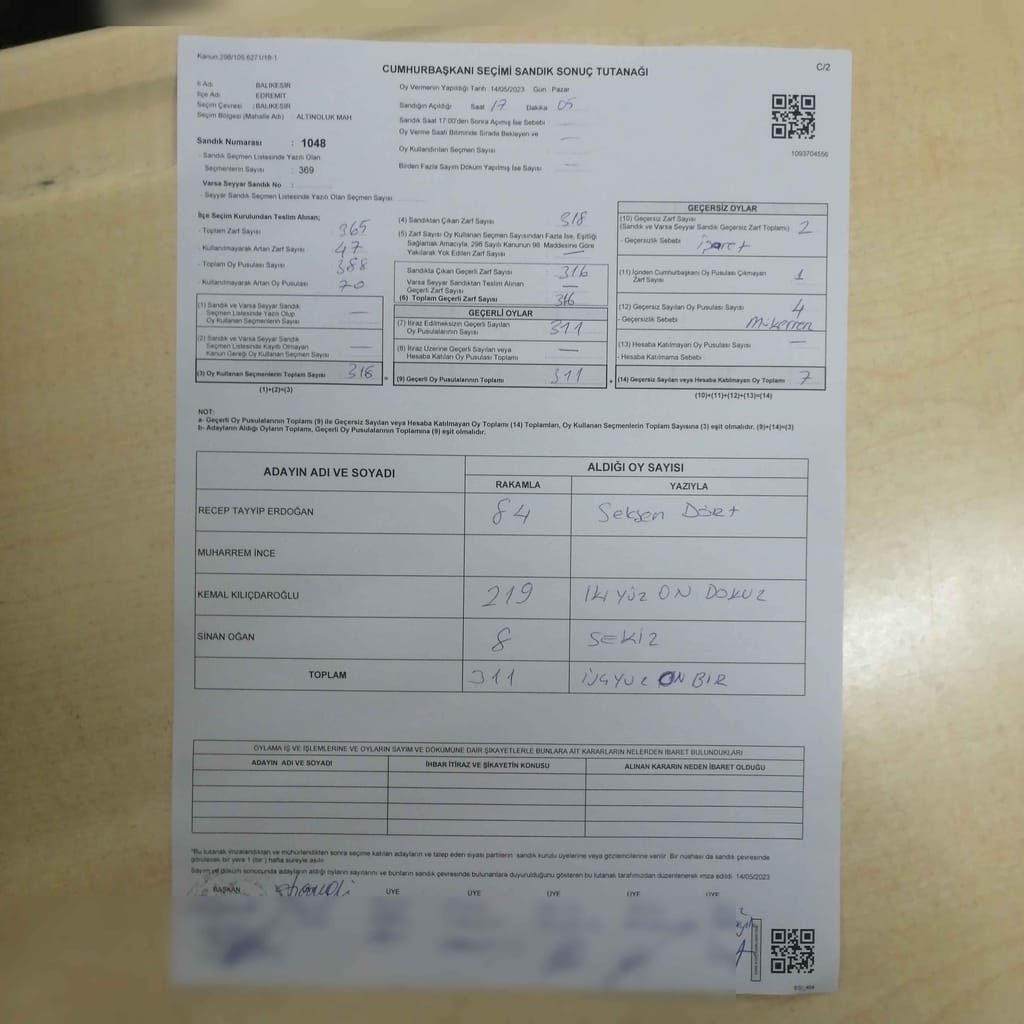 Kanun:298/105,6271/18-1
CUMHURBAŞKANI SEÇİMİ SANDIK SONUÇ TUTANAĞI
C/2
İl Adı : BALIKESİR
İlçe Adı : EDREMİT
Seçim Çevresi : BALIKESİR
Seçim Bölgesi (Mahalle Adı) ALTINOLUK MAH
Sandık Numarası : 1048
- Sandık Seçmen Listesinde Yazılı Olan
Seçmenlerin Sayısı : 369
Varsa Seyyar Sandık No :
- Seyyar Sandık Seçmen Listesinde Yazılı Olan Seçmen Sayısı
Oy Vermenin Yapıldığı Tarih :14/05/2023 Gün : Pazar
Sandığın Açıldığı Saat 17 Dakika 05
Sandık Saat 17:00'den Sonra Açımış İse Sebebi
Oy Verme Saati Bitiminde Sırada Bekleyen ve
Oy Kullandırılan Seçmen Sayısı
Birden Fazla Sayım Döküm Yapılmış İse Sayısı
1093704556
İlçe Seçim Kurulundan Teslim Alınan;
- Toplam Zarf Sayısı 365
- Kullanılmayarak Artan Zarf Sayısı 47
- Toplam Oy Pusulası Sayısı 388
- Kullanılmayarak Artan Oy Pusulası 70
(1) Sandık ve Varsa Seyyar Sandık
Seçmen Listesinde Yazılı Olup
Oy Kullanan Seçmenlerin Sayısı —
(2) Sandık ve Varsa Seyyar Sandık
Seçmen Listesinde Kayıtlı Olmayan
Kanun Gereği Oy Kullanan Seçmen Sayısı —
(3) Oy Kullanan Seçmenlerin Toplam Sayısı 318
(1)+(2)=(3)
(4) Sandıktan Çıkan Zarf Sayısı 318
(5) Zarf Sayısı Oy Kullanan Seçmen Sayısından Fazla İse, Eşitliği
Sağlamak Amacıyla, 298 Sayılı Kanunun 98. Maddesine Göre
Yakılarak Yok Edilen Zarf Sayısı —
Sandıkta Çıkan Geçerli Zarf Sayısı 316
Varsa Seyyar Sandıktan Teslim Alınan
Geçerli Zarf Sayısı —
(6) Toplam Geçerli Zarf Sayısı 316
GEÇERLİ OYLAR
(7) İtiraz Edilmeksizin Geçerli Sayılan
Oy Pusulalarının Sayısı 311
(8) İtiraz Üzerine Geçerli Sayılan veya
Hesaba Katılan Oy Pusulası Toplamı —
(9) Geçerli Oy Pusulalarının Toplamı 311
GEÇERSİZ OYLAR
(10) Geçersiz Zarf Sayısı
(Sandık ve Varsa Seyyar Sandık Geçersiz Zarf Toplamı) 2
- Geçersizlik Sebebi İşaret
(11) İçinden Cumhurbaşkanı Oy Pusulası Çıkmayan
Zarf Sayısı 1
(12) Geçersiz Sayılan Oy Pusulası Sayısı 4
- Geçersizlik Sebebi Mükerrer
(13) Hesaba Katılmayan Oy Pusulası Sayısı —
- Hesaba Katılmama Sebebi
(14) Geçersiz Sayılan veya Hesaba Katılmayan Oy Toplamı 7
(10)+(11)+(12)+(13)=(14)
NOT:
a- Geçerli Oy Pusulalarının Toplamı (9) ile Geçersiz Sayılan veya Hesaba Katılmayan Oy Toplamı (14) Toplamları, Oy Kullanan Seçmenlerin Toplam Sayısına (3) eşit olmalıdır. (9)+(14)=(3)
b- Adayların Aldığı Oyların Toplamı, Geçerli Oy Pusulalarının Toplamına (9) eşit olmalıdır.
ADAYIN ADI VE SOYADI ALDIĞI OY SAYISI
RAKAMLA YAZIYLA
RECEP TAYYİP ERDOĞAN 84 Seksen Dört
MUHARREM İNCE
KEMAL KILIÇDAROĞLU 219 İKİ YÜZ ON DOKUZ
SİNAN OĞAN 8 SEKİZ
TOPLAM 311 ÜÇYÜZ ON BİR
OYLAMA İŞ VE İŞLEMLERİNE VE OYLARIN SAYIM VE DÖKÜMÜNE DAİR ŞİKAYETLERLE BUNLARA AİT KARARLARIN NELERDEN İBARET BULUNDUKLARI
ADAYIN ADI VE SOYADI İHBAR İTİRAZ VE ŞİKAYETİN KONUSU ALINAN KARARIN NEDEN İBARET OLDUĞU
*Bu tutanak imzalandıktan ve mühürlendikten sonra seçime katılan adayların ve talep eden siyasi partilerin sandık kurulu üyelerine veya gözlemcilerine verilir. Bir nüshası da sandık çevresinde
görülecek bir yere 1 (bir ) hafta süreyle asılır.
Sayım ve döküm sonucunda adayların aldığı oyların sayılarını ve bunların sandık çevresinde bulunanlara duyurulduğunu gösteren bu tutanak tarafımızdan düzenlenerek imza edildi. 14/05/2023
BAŞKAN ÜYE ÜYE ÜYE ÜYE ÜYE